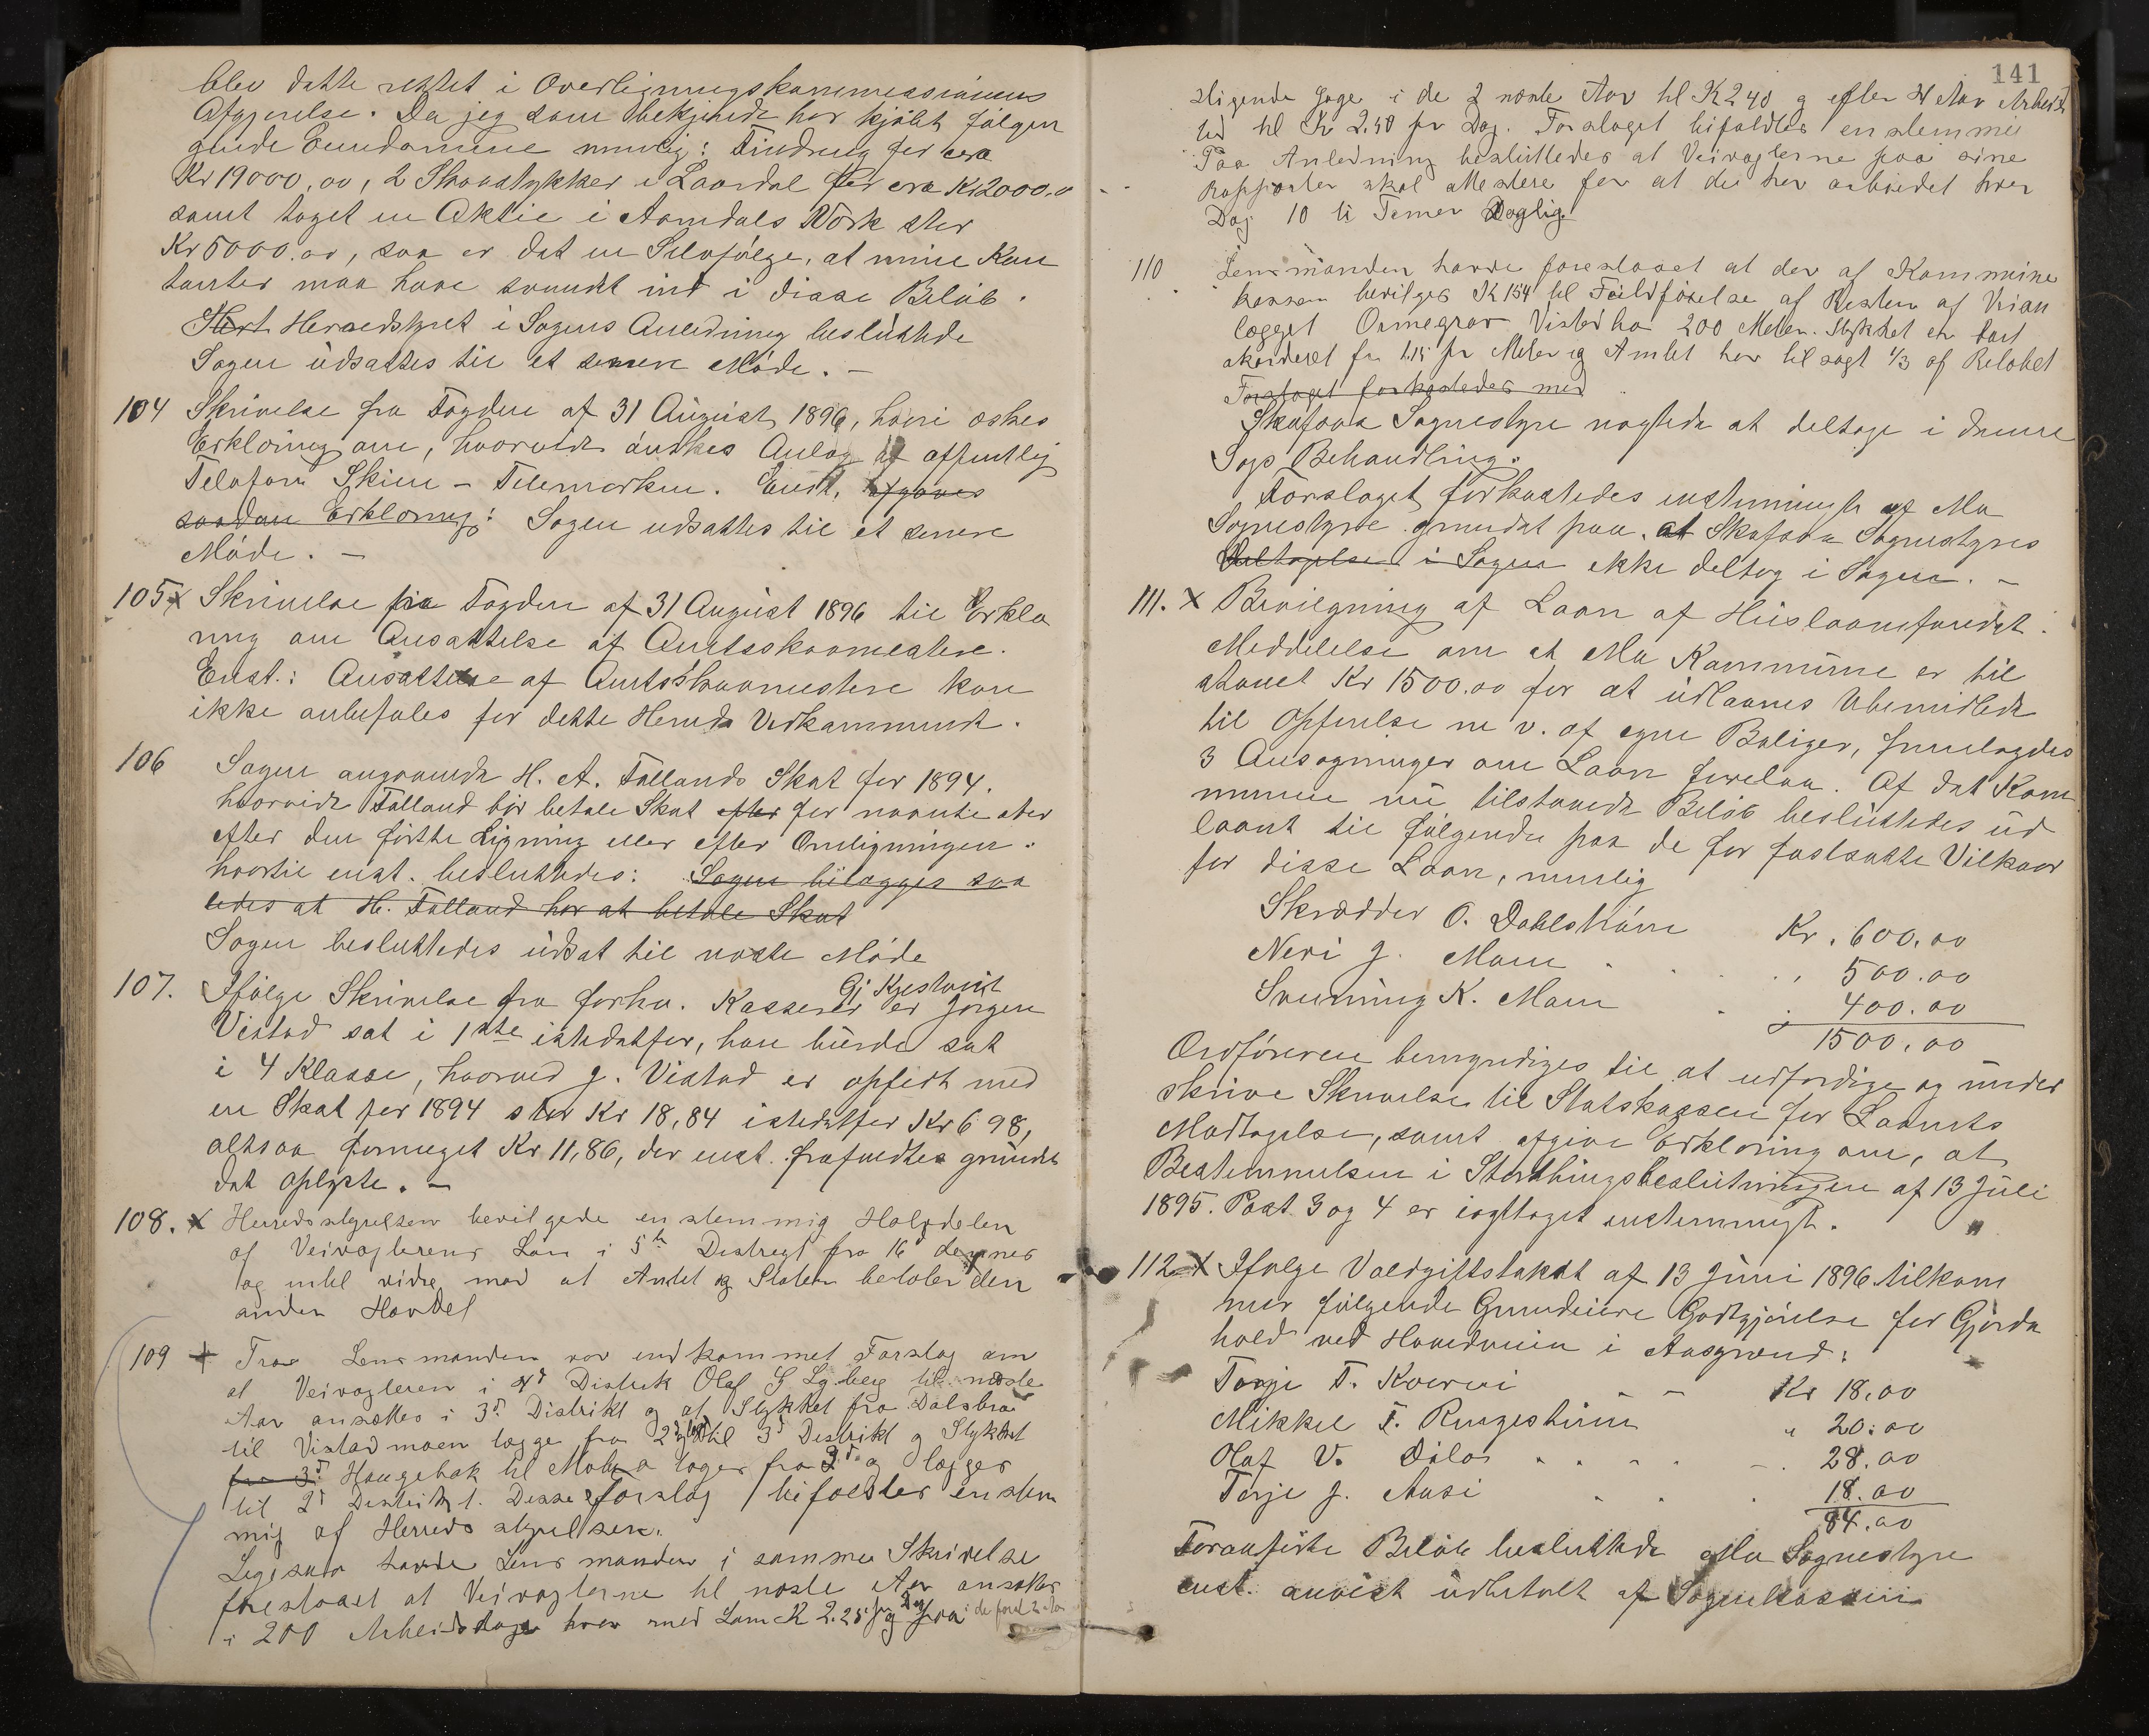 blev dette rettet i Overligningskommissionens
Afgjørelse. Da jeg som bekjendt har kjøbt følgen
gende Eiendomme nemlig: Tindrug for ca
Kr 19000,00, 2 Skovstykker i Laardal for ca Kr 2000,00
samt taget en Aktie i Aamdals Værk stor
Kr 5000.00, saa er det en Selvfølge, at mine Kon
tanter maa have svundet ind i disse Beløb.
Herredstyret i Sagens Anledning besluttede
Sagen udsattes til et senere Møde. —
104 Skrivelse fra Fogden af 31 August 1896, hvori æskes
Erklæring om, hvorvidt ønskes Anlæg af offentlig
Telefon Skien – Telemarken. Enst. afgaves
saadan Erklæring: Sagen udsattes til et senere
Møde. —
105 x Skrivelse fra Fogden af 31 August 1896 til Erklæ
ring om Ansættelse af Amtsskovmestere.
Enst.: Ansættelse af Amtsskovmestere kan
ikke anbefales for dette Herreds Vedkommende.
106 Sagen angaaende H. A. Fallands Skat for 1894.
hvorvidt Falland bør betale Skat efter for nævnte aar
efter den første Ligning eller efter Omligningen.
hvortil enst. besluttedes: Sagen bilægges saa
ledes at H. Falland har at betale Skat
Sagen besluttedes udsat til næste Møde
107. Ifølge Skrivelse fra forhv. Kasserer Gj Kjestveit er Jørgen
Vistad sat i 1ste istedetfor, han burde sat
i 4 Klasse, hvorved J. Vistad er opført med
en Skat for 1894 stor Kr 18,84 istedetfor Kr 6 98,
altsaa formeget Kr 11,86, der enst. frafaldtes grundet
det oplyste. —
108. x Herredsstyrelsen bevilgede enstemmig Halvdelen
af Veivogterens Løn i 5te Distregt fra 16 dennes
og indtil videre mod at Amtet og Staten betaler den
anden Hovdel
109 + Fra Lensmanden var indkommet Forslag om
at Veivogteren i 4d Distrik Olaf S Lgberg til næste
Aar ansættes i 3d Distrikt og at Stykket fra Dalsbraa
til Vistadmoen lægge fra 2d til 3d Distrikt og Stykket
fra 3d Haugebak til Moberg tages fra 3d og lægges
til 2d Distrikt. Disse Forslag bifaldtes enstem
mig af Herredsstyrelsen.
Ligesaa havde Lensmanden i samme Skrivelse
foreslaaet at Veivogterne til næste Aar ansættes
i 200 Arbeidsdage hver med Løn K 2.25 pr Dag for de først 2 Aar
141
stigende Gage i de 2 næste Aar til K 2 40 og efter 4 Aar Arbeids
tid til Kr 2.50 pr Dag. Forslaget bifaldtes enstemmig
Paa Anledning besluttedes at Veivogterne paa sine
Rapporter skal attestere for at de har arbeidet hver
Dag 10 ti Timer Daglig
110 Lensmanden havde foreslaaet at der af Kommune
kassen bevilges Kr 154 til Fuldførelse af Resten af Veian
lægget Ormegrav Vistad ca 200 Meter. Stykket er bort
akorderet for 1.15 pr Meter og Amtet har tilsagt 1/3 af Beløbet
Forslaget forkastedes med
Skafsaa Sognestyre nægtede at deltage i denne
Sags Behandling.
Forslaget forkastedes enstemmigt af Mo
Sognestyre grundet paa, at Skafsaa Sognestyres
Deltagelse i Sagen ekke deltog i Sagen. —
111. x Bevilgning af Laan af Huslaanefondet.
Meddelelse om at Mo Kommune er til
staaet Kr 1500.00 for at udlaanes Ubemidlede
til Opførelse m v. af egne Boliger, fremlagdes
3 Ansøgninger om Laan forelaa. Af det Kom
munen nu tilstaaede Beløb besluttedes ud
laant til følgende paa de for fastsatte Vilkaar
for disse Laan, nemlig
Skrædder O. Dahlstrøm Kr. 600.00
Neri J. Moen " 500.00
Svenning K. Moen " 400.00
1500.00
Ordføreren bemyndiges til at udfærdige og under
skrive Skrivelse til Statskassen for Laanets
Modtagelse, samt afgive Erklæring om, at
Bestemmelsen i Storthingsbeslutningen af 13 Juli
1895. Post 3 og 4 er iagttaget enstemmigt.
112 x Ifølge Voldgiftstakst af 13 Juni 1896 tilkom
mer følgende Grundeiere Godtgjørelse for Gjærde
hold ved Hovedveien i Aasgrænd:
Torje T. Kverni Kr 18,00
Mikkel T. " 20.00
Olaf V. Dalos 28.00
Torje J. Aasi 18.00
84.00
Foranførte Beløb besluttede Mo Sognestyre
enst. anvist udbetalt af Sognekassen